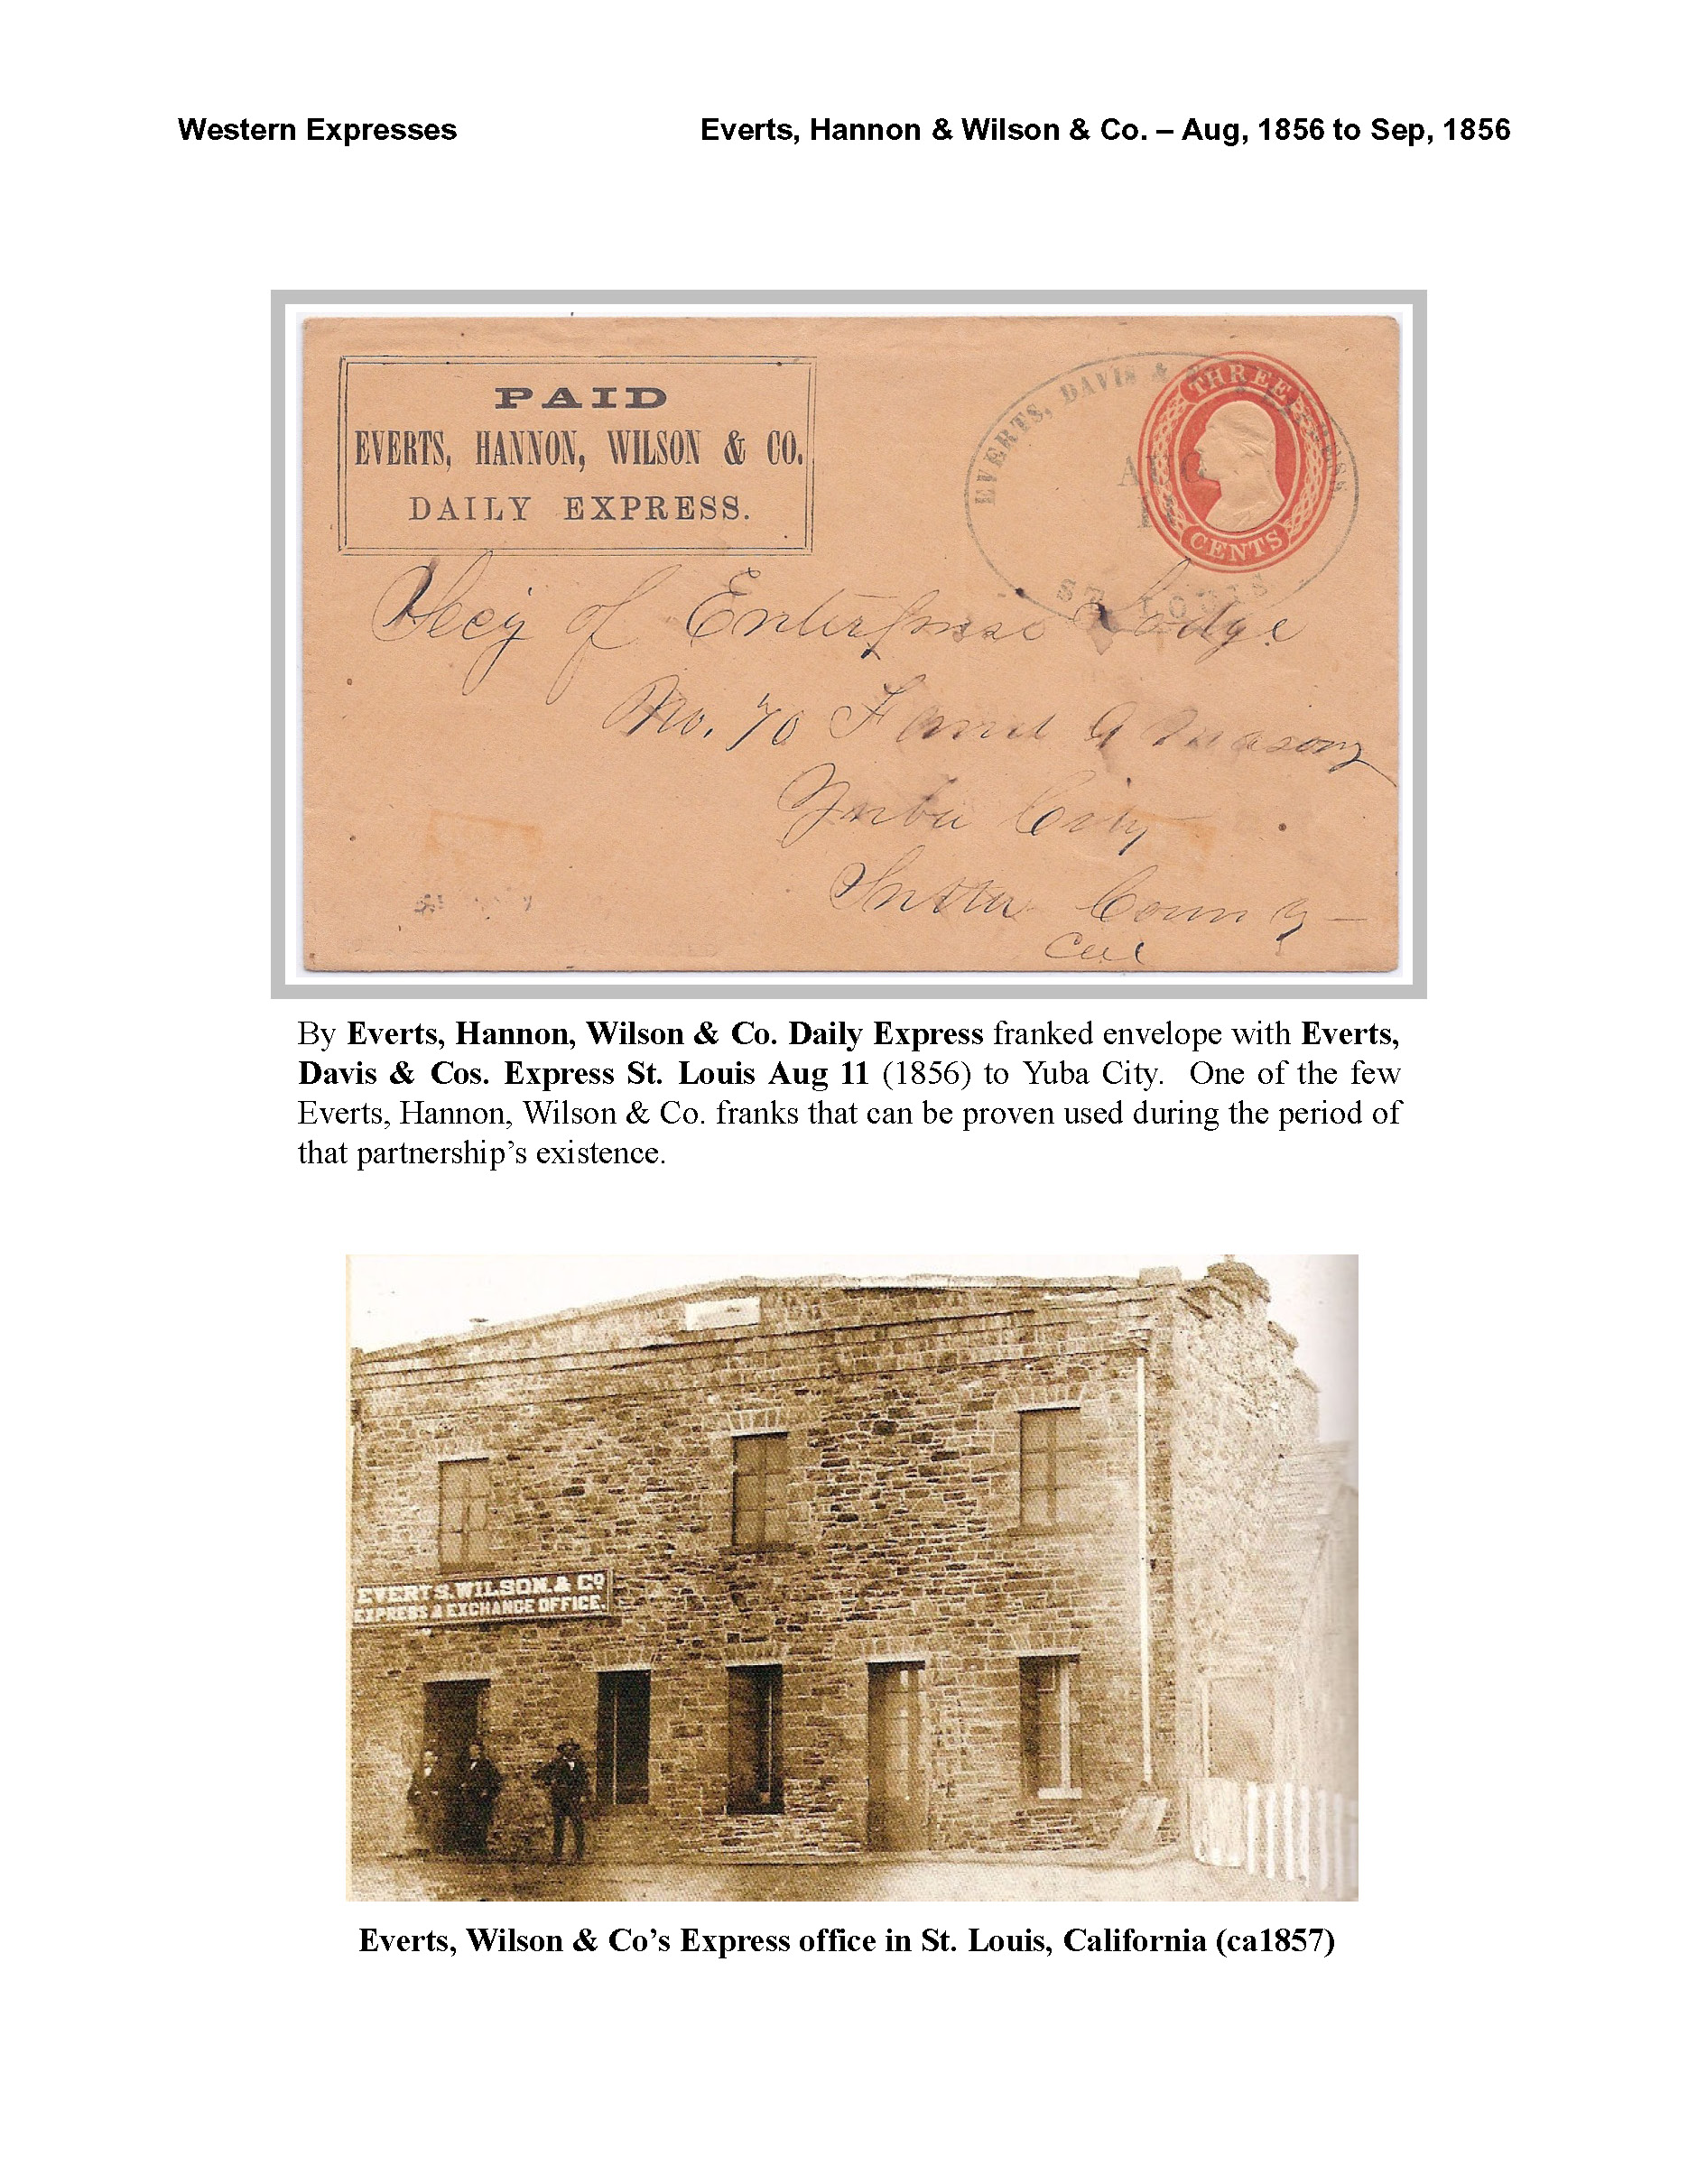 Western Expresses Everts, Hannon & Wilson & Co. – Aug, 1856 to Sep, 1856
PAID
EVERTS, HANNON, WILSON & CO.
DAILY EXPRESS.
EVERTS, DAVIS & EXPRESS
AUG
ST. LOUIS
THREE
CENTS
Secy of Enterprise Lodge
No. 70 F and A Masons
Yuba City
Sutter County
Cal
By Everts, Hannon, Wilson & Co. Daily Express franked envelope with Everts,
Davis & Cos. Express St. Louis Aug 11 (1856) to Yuba City. One of the few
Everts, Hannon, Wilson & Co. franks that can be proven used during the period of
that partnership’s existence.
EVERTS, WILSON, & CO
EXPRESS & EXCHANGE OFFICE.
Everts, Wilson & Co’s Express office in St. Louis, California (ca1857)